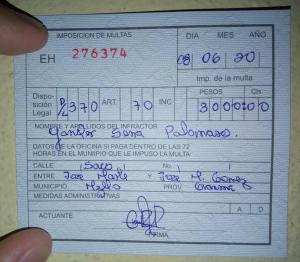 IMPOSICION DE MULTAS
DIA MES AÑO
EH 276374
08 06 20
Imp. de la multa
PESOS Cts.
Dispo-
sición
Legal D/L 370 ART. 70 INC
3000 00
NOMBRE Y APELLIDOS DEL INFRACTOR
DATOS DE LA OFICINA SI PAGA DENTRO DE LAS 72
HORAS EN EL MUNIPIO QUE LE IMPUSO LA MULTA
CALLE No.
ENTRE José Martí Y José M. Gómez
MUNICIPIO PROV. Granma
MEDIDAS ADMINISTRATIVAS
A D
ACTUANTE
FIRMA